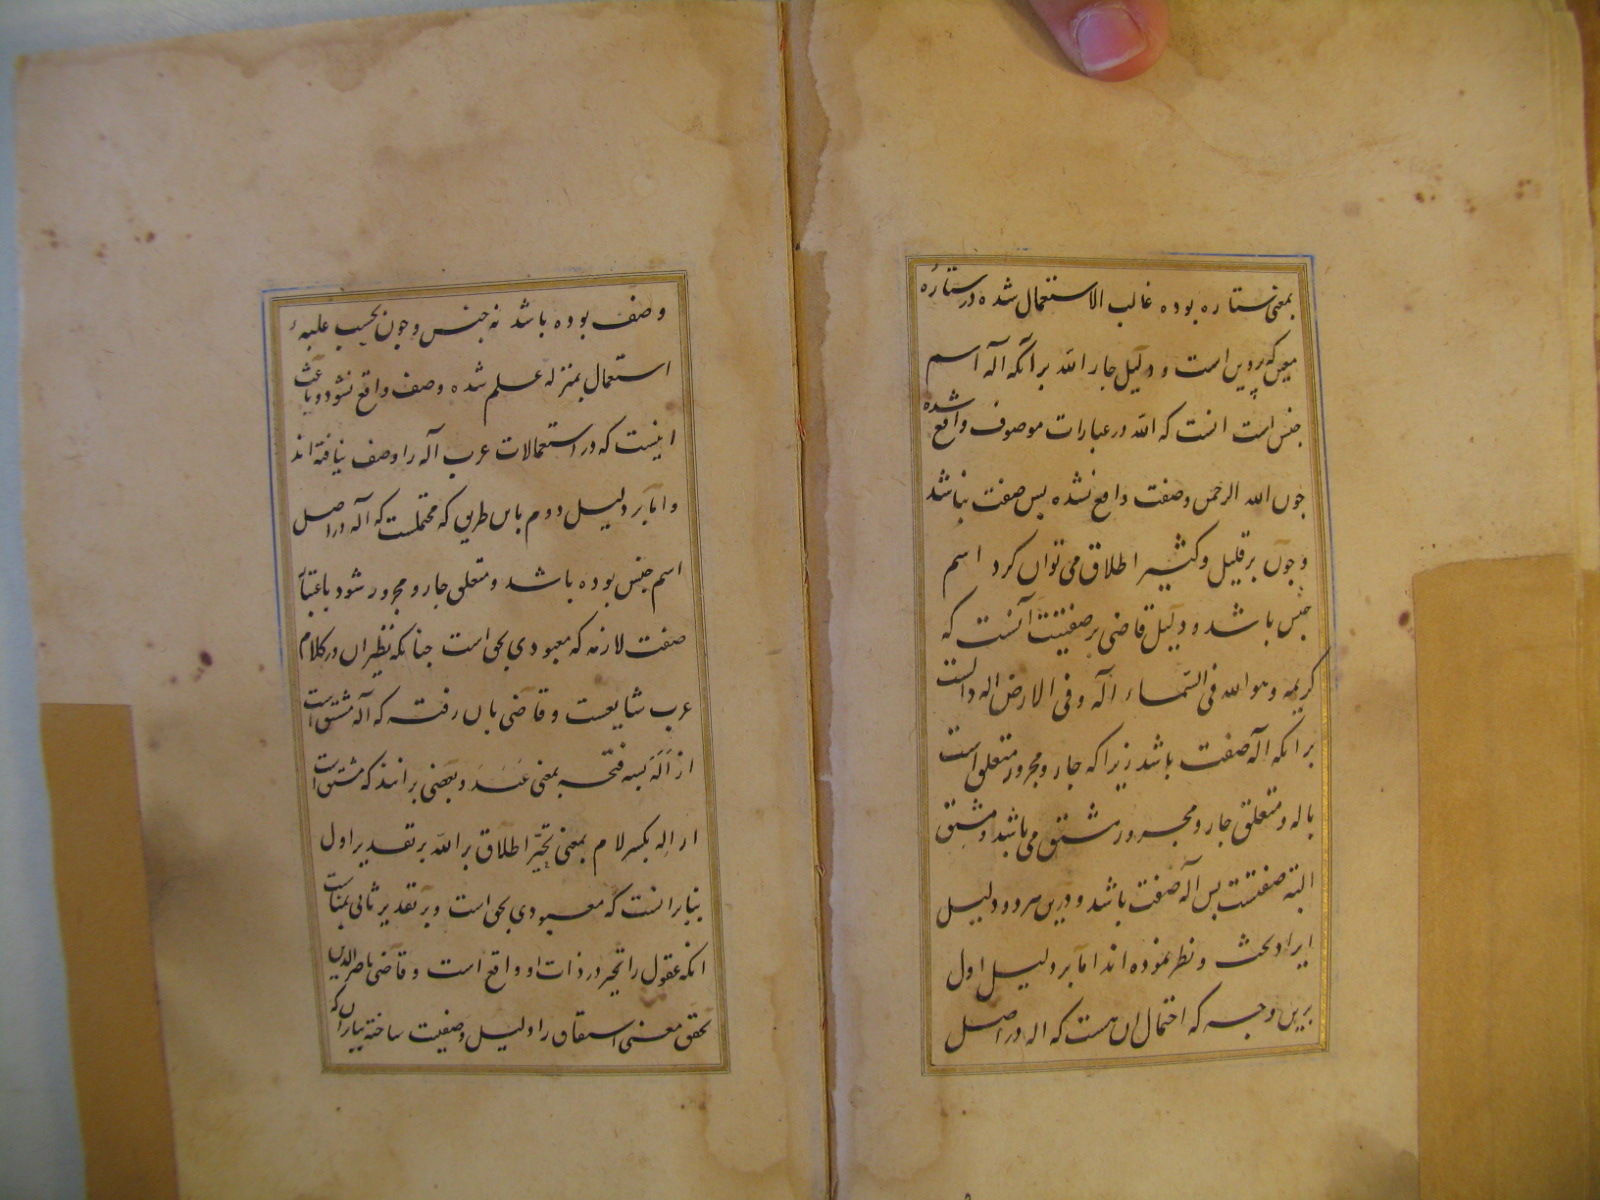 بمعنی ستاره بوده غالب الاستعمال شده در ستاره
معین که پروین است و دلیل جار الله بر آنکه آله اسم
جنس است انست که الله در عبارات موصوف واقع شده
جون الله الرحمن وصفت واقع نشده بس صفت نباشد
و جون بر قلیل و کثیر اطلاق می توان کرد اسم
جنس باشد و دلیل قاضی بر صفتیت آنست که
کریمه وهو الله فی السماء اله و فی الارض اله دالست
بر انکه اله صفت باشد زیرا که جار و مجرور متعلق است
باله و متعلق جار و مجرور مشتق می باشد و مشتق
البته صفتست بس اله صفت باشد و درین هر دو دلیل
ایراد بحث و نظر نموده اند اما بر دلیل اول
برین وجه که احتمال ان هست که اله در اصل
وصف بوده باشد نه جنس و جون بحسب غلبه
استعمال بمنزله علم شده وصف واقع نشود و باعث
اینست که در استعمالات عرب اله را وصف نیافته اند
و اما بر دلیل دوم باین طریق که محتملست که اله در اصل
اسم جنس بوده باشد و متعلق جار و مجرور شود باعتبار
صفت لازمه که معبودی بحق است جنانکه نظیر ان در کلام
عرب شایعست و قاضی بان رفته که اله مشتق است
از اَلَهَ بسه فتحه بمعنی عَبَدَ و بعضی برانند که مشتق است
از اله بکسر لام بمعنی تحیّر اطلاق بر الله بر تقدیر اول
بنابر انست که معبودی بحق است و بر تقدیر ثانی بمناسبت
انکه عقول را تحیر در ذات او واقع است و قاضی ناصر الدین
تحقق معنی اشتقاق را دلیل وصفیت ساخته بنابر ان که